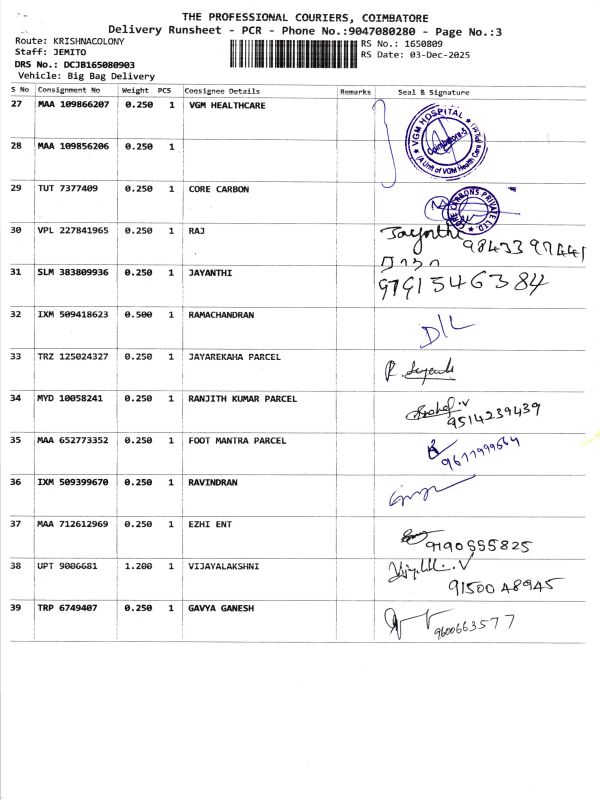 THE PROFESSIONAL COURIERS, COIMBATORE
Delivery Runsheet - PCR - Phone No.:9047080280 - Page No.:3
Route: KRISHNACOLONY
RS No.: 1650809
Staff: JEMITO
RS Date: 03-Dec-2025
DRS No.: DCJB165080903
Vehicle: Big Bag Delivery
S No Consignment No Weight PCS Consignee Details Remarks Seal & Signature
27 MAA 109866207 0.250 1 VGM HEALTHCARE
VGM HOSPITAL
Coimbatore-5
(A Unit of VGM Health Care (P)Ltd.)
28 MAA 109856206 0.250 1
29 TUT 7377409 0.250 1 CORE CARBON
CORE CARBONS PRIVATE LTD.
30 VPL 227841965 0.250 1 RAJ Jayanthi
9843397441
31 SLM 383809936 0.250 1 JAYANTHI
9791546384
32 IXM 509418623 0.500 1 RAMACHANDRAN D/L
33 TRZ 125024327 0.250 1 JAYAREKAHA PARCEL
34 MYD 10058241 0.250 1 RANJITH KUMAR PARCEL
9514239439
35 MAA 652773352 0.250 1 FOOT MANTRA PARCEL
9677999564
36 IXM 509399670 0.250 1 RAVINDRAN
37 MAA 712612969 0.250 1 EZHI ENT
9190555825
38 UPT 9006681 1.200 1 VIJAYALAKSHNI
9150048945
39 TRP 6749407 0.250 1 GAVYA GANESH
9600663577